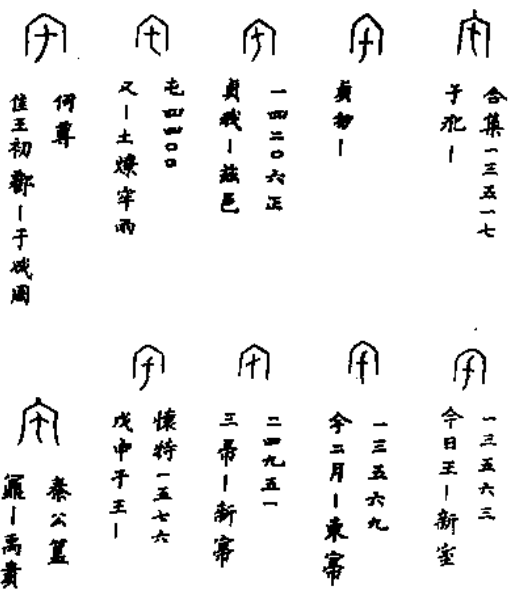 合集一三五一七
于｜
貞｜
一四二〇六正
貞我｜茲邑
屯四四〇〇
又｜土燎牢雨
何尊
隹王初｜于成周
一三五六三
今日王｜新室
一三五六九
今二月｜東寢
二四九五一
三帚｜新寢
懷特一五七六
戊申子王｜
秦公簋
鼏｜禹賁